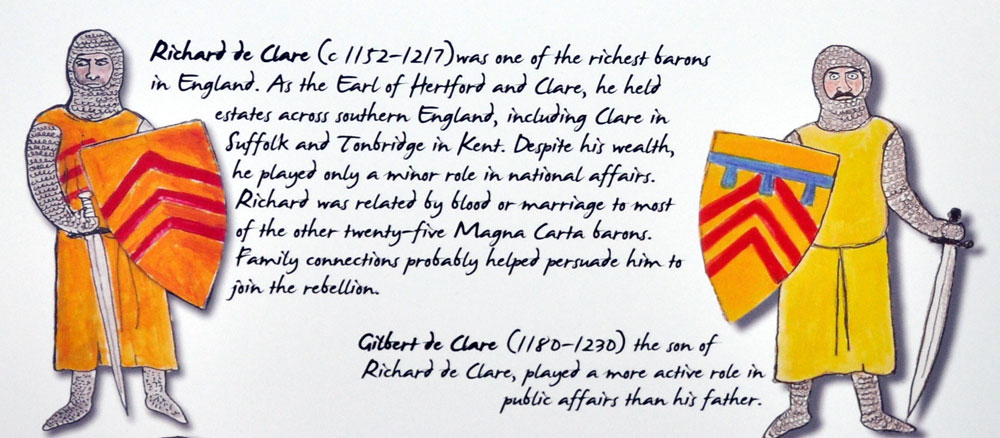 Richard de Clare (c 1152–1217) was one of the richest barons
in England. As the Earl of Hertford and Clare, he held
estates across southern England, including Clare in
Suffolk and Tonbridge in Kent. Despite his wealth,
he played only a minor role in national affairs.
Richard was related by blood or marriage to most
of the other twenty-five Magna Carta barons.
Family connections probably helped persuade him to
join the rebellion.
Gilbert de Clare (1180–1230) the son of
Richard de Clare, played a more active role in
public affairs than his father.